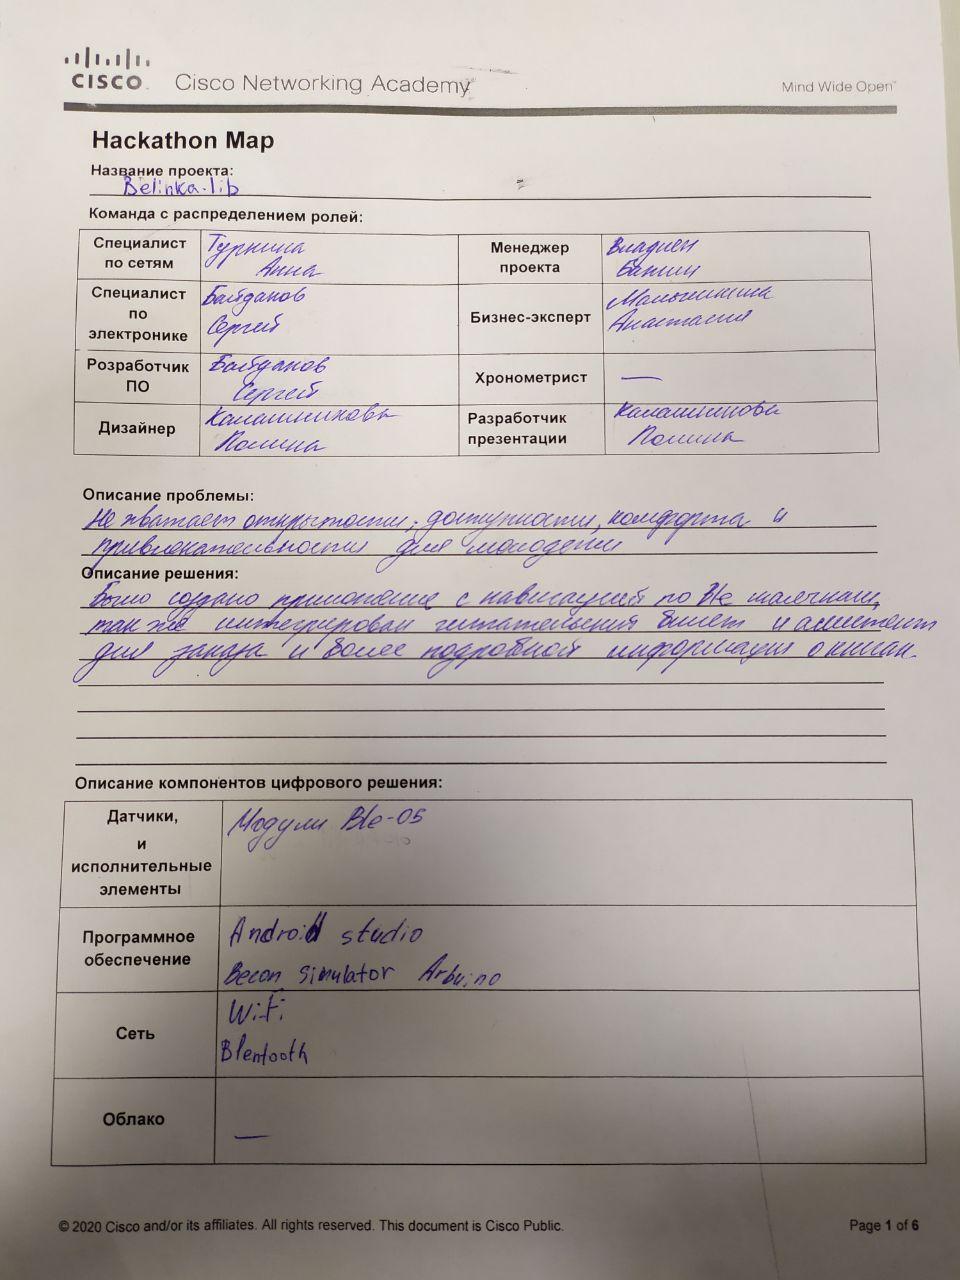 CISCO
Cisco Networking Academy
Mind Wide Open™
Hackathon Map
Название проекта:
Belinka.lib
Команда с распределением ролей:
Специалист по сетям
Турнина
Анна
Менеджер проекта
Владлен
Бакшин
Специалист по электронике
Байданов
Сергей
Бизнес-эксперт
Анастасия
Розработчик ПО
Байданов
Сергей
Хронометрист
—
Дизайнер
Калашникова
Полина
Разработчик презентации
Калашникова
Полина
Описание проблемы:
Не хватает открытости, доступности, комфорта и
привлекательности для молодежи
Описание решения:
Было создано приложение с навигацией по Ble маячкам,
так же интегрирован читательский билет и ассистент
для заказа и более подробной информации о книгах.
Описание компонентов цифрового решения:
Датчики,
и
исполнительные
элементы
Модули Ble-05
Программное
обеспечение
Android studio
Becon simulator Arduino
Сеть
WiFi
Bluetooth
Облако
—
© 2020 Cisco and/or its affiliates. All rights reserved. This document is Cisco Public.
Page 1 of 6